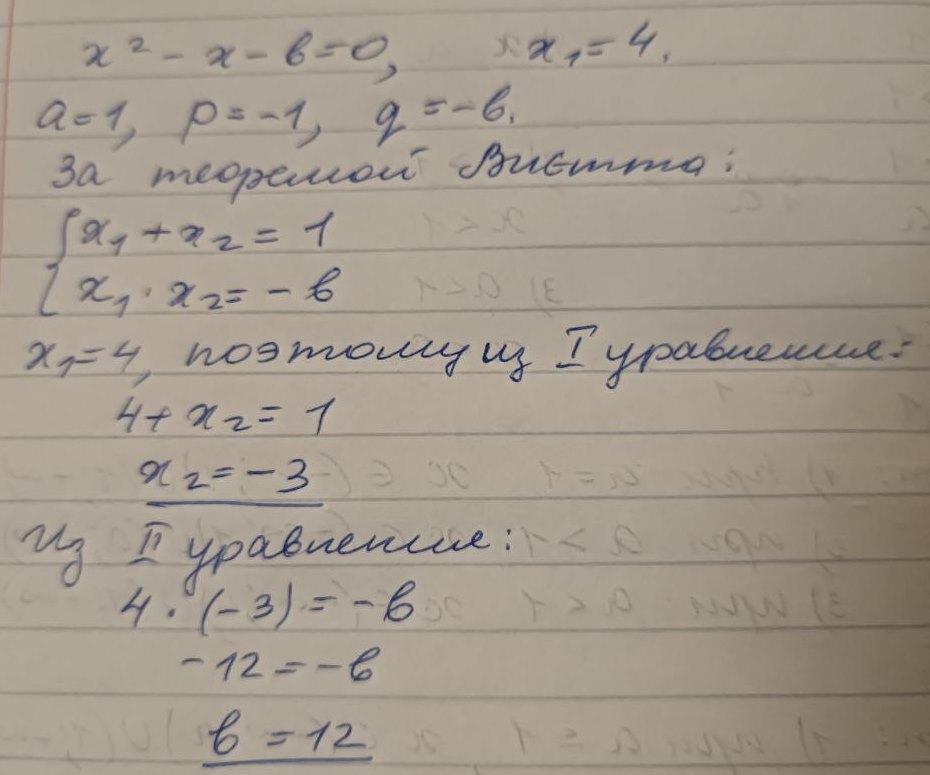 x² - x - b = 0, x₁ = 4.
a = 1, p = -1, q = -b.
За теоремой Виєтта:
{ x₁ + x₂ = 1
{ x₁ · x₂ = - b
x₁ = 4, поэтому из I уравнения:
4 + x₂ = 1
x₂ = -3
Из II уравнения:
4 · (-3) = -b
-12 = -b
b = 12